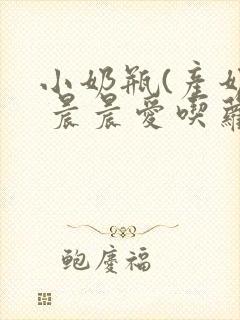 小奶瓶(產奶
晨晨愛喫蘿
鲍慶福